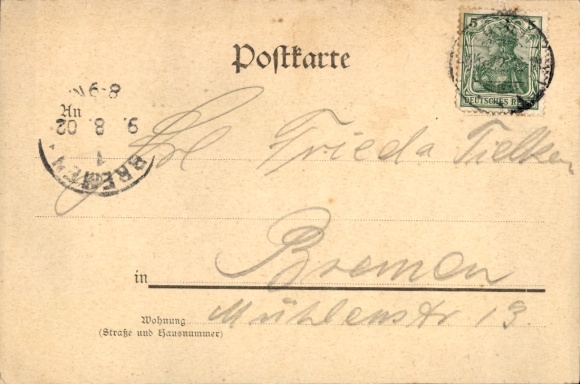 Postkarte
5
DEUTSCHES
8-9N
An
9. 8. 02
1
BREMEN
Frl Frieda Tielken
in Bremen
Wohnung
(Straße und Hausnummer)
Mühlenstr 13.